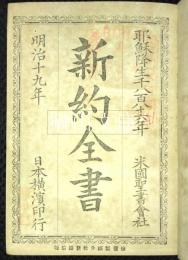 耶穌降生千八百八十六年
米國聖書會社
新約全書
明治十九年
日本橫濱印行